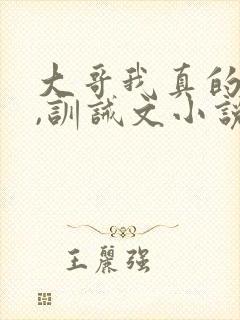 大哥我真的
,訓誡文小說
王麗强